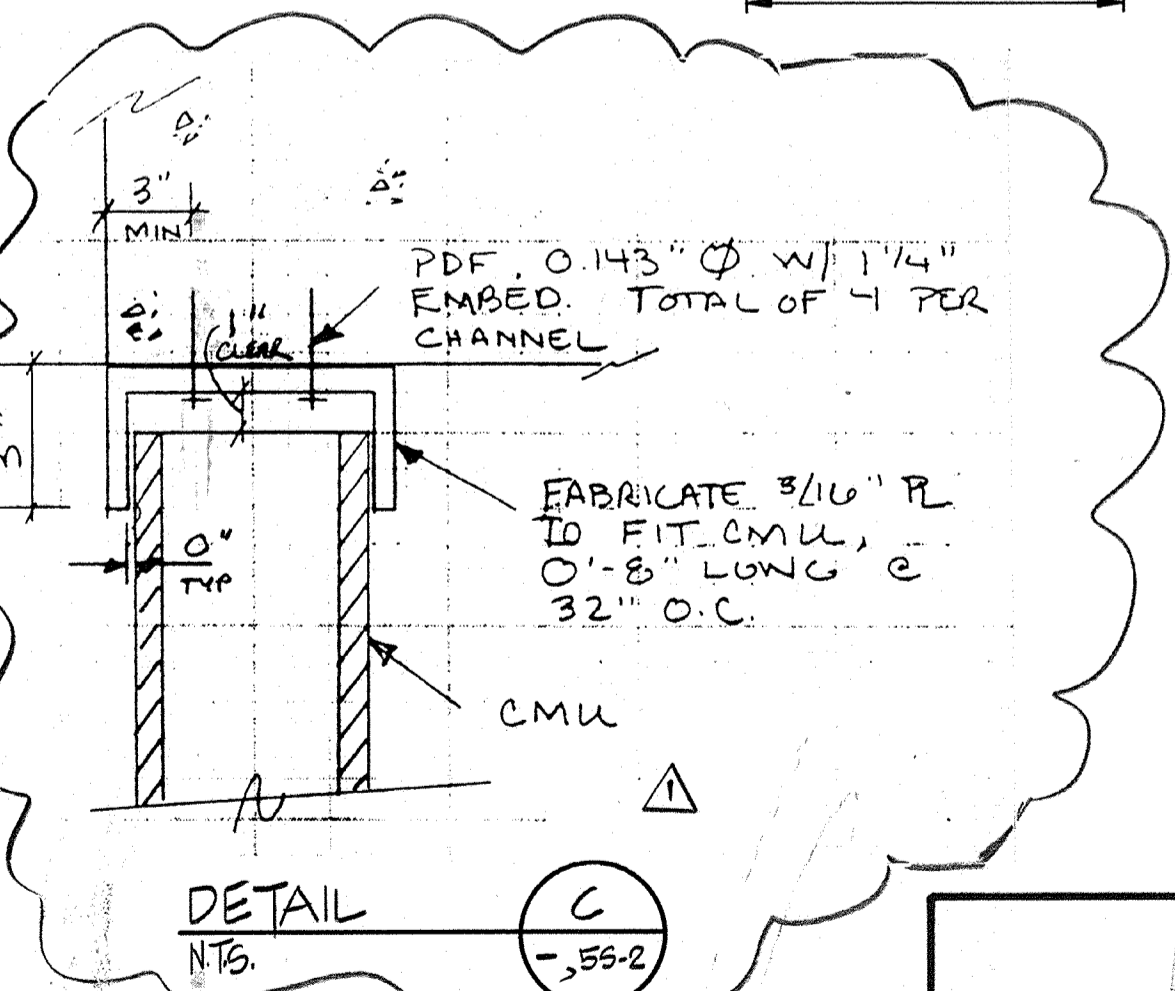 3"
MIN
PDF. 0.143" Ø W/ 1 1/4"
EMBED. TOTAL OF 4 PER
CHANNEL
1"
CLEAR
FABRICATE 3/16" PL
TO FIT CMU,
0'-8" LONG @
32" O.C.
0"
TYP
CMU
1
DETAIL
N.T.S.
C
-,SS-2